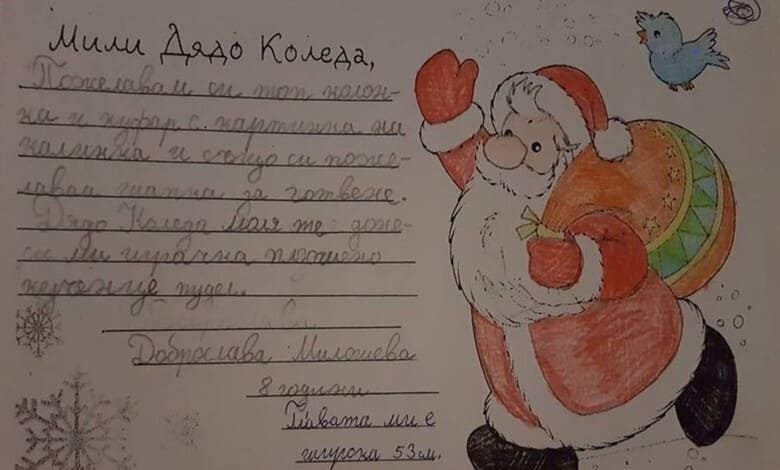 Мили Дядо Коледа,
Пожелавам си топ колон-
ка и куфар с картинка на
калинка и също си поже-
лавам шапка за готвене.
Дядо Коледа моля те доне-
си ми играчка плюшено
кученце пудел.
Доброслава Милошева
8 години
Главата ми е
широка 53 см.